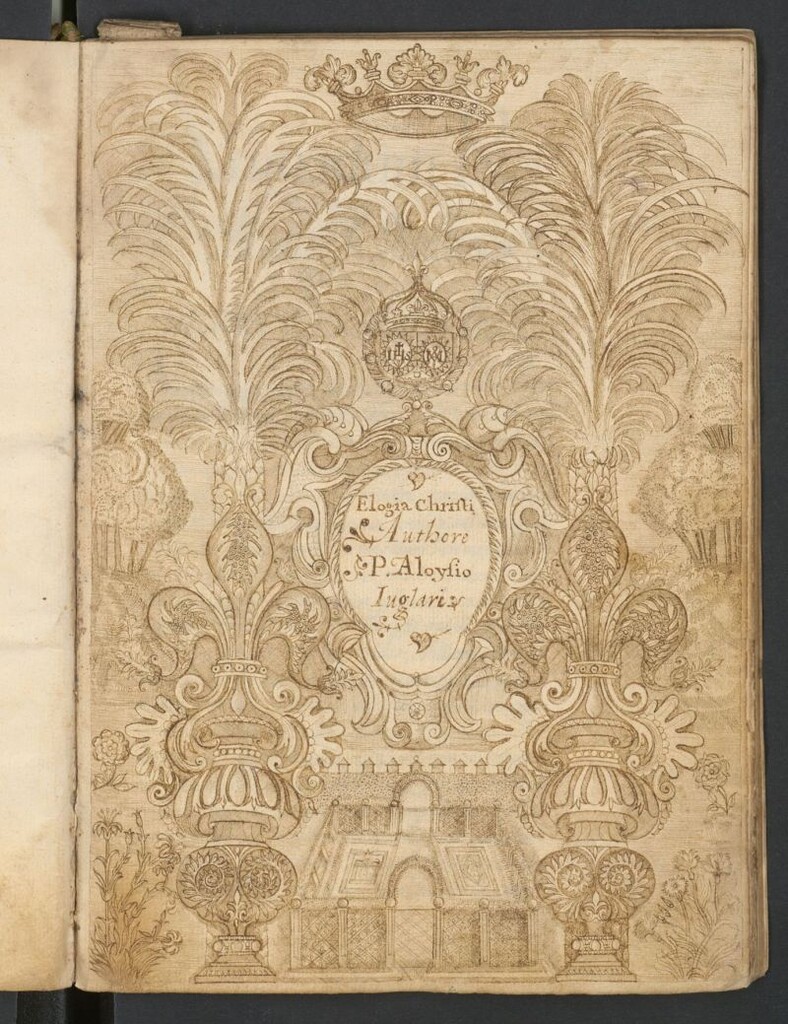 IHS MA
Elogia Christi
Authore
P. Aloysio
Iuglaris